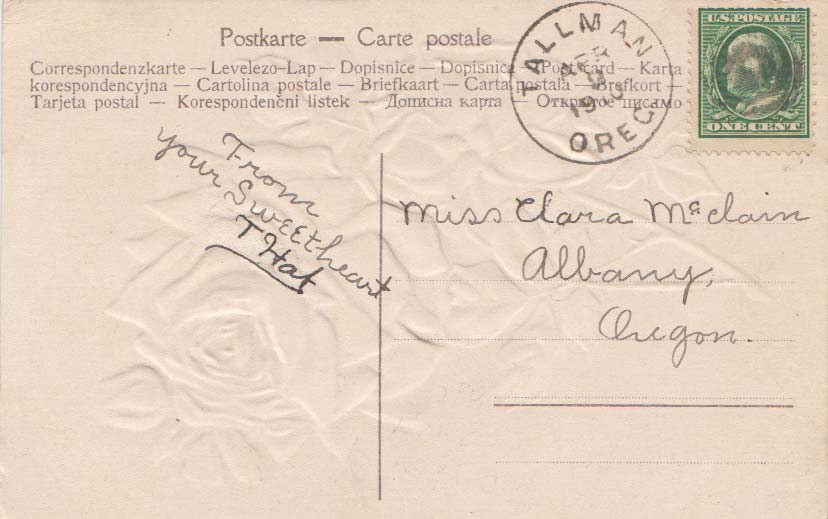 Postkarte — Carte postale
Correspondenzkarte — Levelezo-Lap — Dopisnice — Dopisnica — Postcard — Karta
korespondencyjna — Cartolina postale — Briefkaart — Carta postala — Brefkort —
Tarjeta postal — Korespondenčni listek — Дописна карта — Открытое письмо
TALLMAN
APR
8
OREG
U.S. POSTAGE
ONE CENT
From
your Sweetheart
T Hat
Miss Clara McClain
Albany,
Oregon.